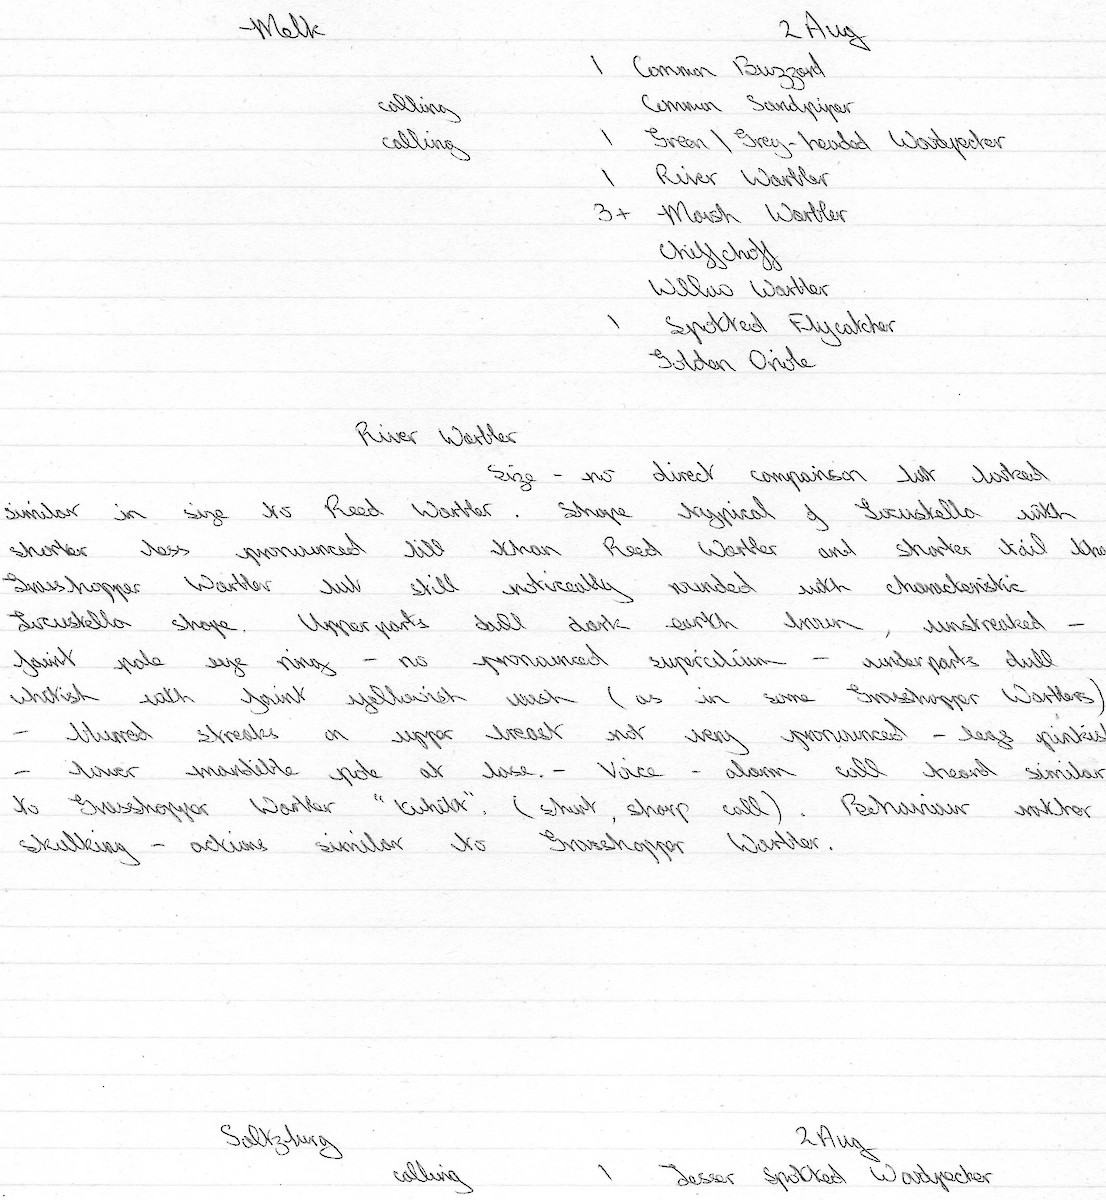 Melk 2 Aug
1 Common Buzzard
calling Common Sandpiper
calling 1 Green \ Grey-headed Woodpecker
1 River Warbler
3+ Marsh Warbler
Chiffchaff
Willow Warbler
1 Spotted Flycatcher
Golden Oriole
River Warbler
Size - no direct comparison but looked
similar in size to Reed Warbler. Shape typical of Locustella with
shorter less pronounced bill than Reed Warbler and shorter tail tha
Grasshopper Warbler but still noticeably rounded with characteristic
Locustella shape. Upperparts dull dark earth brown, unstreaked -
faint pale eye ring - no pronounced supercilium - underparts dull
whitish with faint yellowish wash (as in some Grasshopper Warblers)
- blurred streaks on upper breast not very pronounced - legs pinkish
- lower mandible pale at base. - Voice - alarm call heard similar
to Grasshopper Warbler (short, sharp call). Behaviour rather
skulking - actions similar to Grasshopper Warbler.
Saltzburg 2 Aug
calling 1 Lesser Spotted Woodpecker